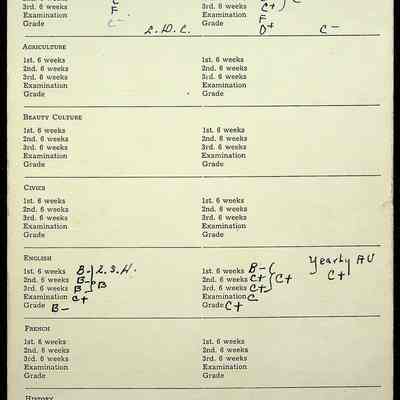 C
3rd. 6 weeks F 3rd. 6 weeks C+ C
Examination Examination F
Grade C- Grade D+ C-
AGRICULTURE
1st. 6 weeks 1st. 6 weeks
2nd. 6 weeks 2nd. 6 weeks
3rd. 6 weeks 3rd. 6 weeks
Examination Examination
Grade Grade
BEAUTY CULTURE
1st. 6 weeks 1st. 6 weeks
2nd. 6 weeks 2nd. 6 weeks
3rd. 6 weeks 3rd. 6 weeks
Examination Examination
Grade Grade
CIVICS
1st. 6 weeks 1st. 6 weeks
2nd. 6 weeks 2nd. 6 weeks
3rd. 6 weeks 3rd. 6 weeks
Examination Examination
Grade Grade
ENGLISH
1st. 6 weeks B- L.S.H. 1st. 6 weeks B- Yearly AV
2nd. 6 weeks B- B 2nd. 6 weeks C+ C+ C+
3rd. 6 weeks B 3rd. 6 weeks C+
Examination C+ Examination C
Grade B- Grade C+
FRENCH
1st. 6 weeks 1st. 6 weeks
2nd. 6 weeks 2nd. 6 weeks
3rd. 6 weeks 3rd. 6 weeks
Examination Examination
Grade Grade
HISTORY